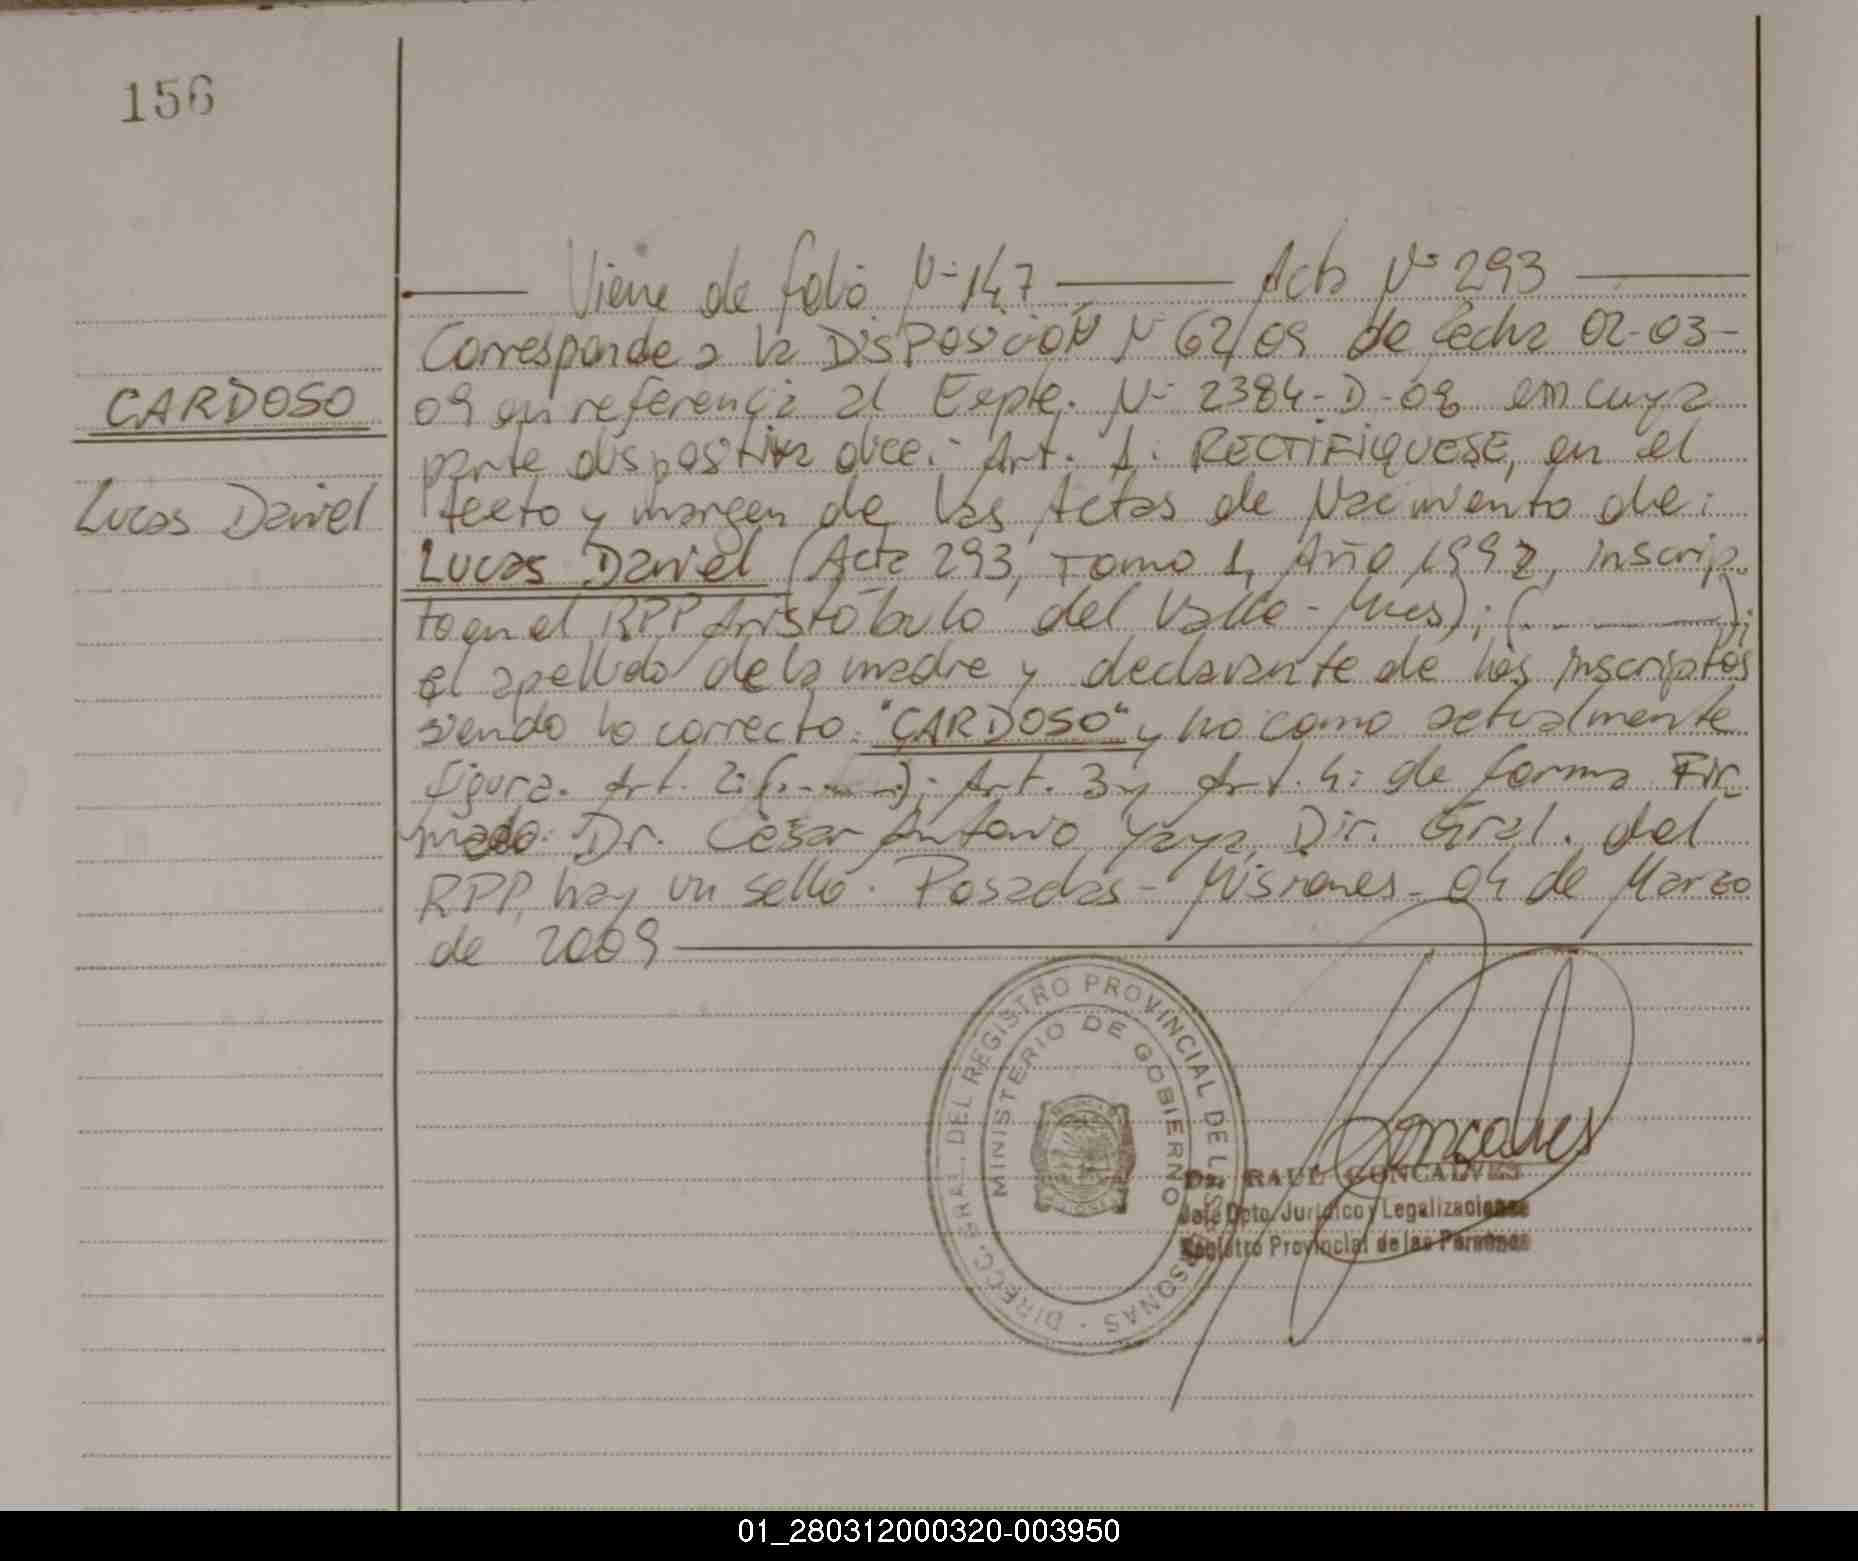 156
CARDOSO
Lucas Daniel
Viene de folio Nº 147 Acta Nº 293
Corresponde a la DISPOSICIOÑ Nº 62/09 de fecha 02-03-
09 en referencia al Expte. Nº 2384-D-08 en cuya
parte dispositiva dice: Art. 1: RECTIFIQUESE, en el
texto y margen de las Actas de Nacimiento de:
Lucas Daniel (Acta 293, Tomo 1, Año 1992, inscrip-
to en el RPP Aristóbulo del Valle - Mnes); (. - - - -);
el apellido de la madre y declarante de los inscriptos
siendo lo correcto: "CARDOSO" y no como actualmente
figura. Art. 2: (. - - - .); Art. 3 y Art. 4: de forma Fir-
mado: Dr. César Antonio Yaya, Dir. Gral. del
RPP, hay un sello. Posadas - Misiones - 04 de Marzo
de 2009
DIRECC. GRAL. DEL REGISTRO PROVINCIAL DE LAS PERSONAS
MINISTERIO DE GOBIERNO
Goncalves
Dr. RAUL GONCALVES
Jefe Dpto. Jurídico y Legalizaciones
Registro Provincial de las Personas
01_280312000320-003950